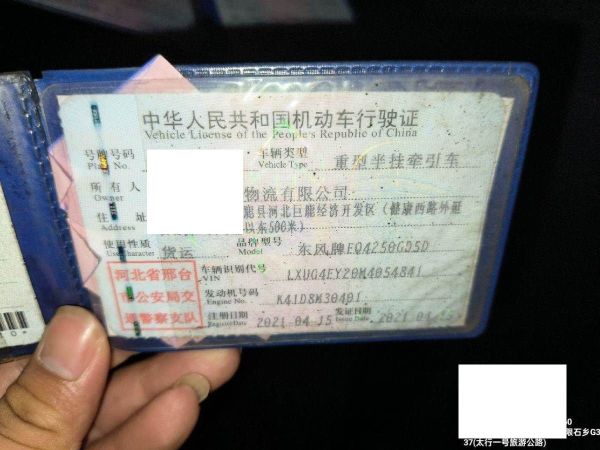 中华人民共和国机动车行驶证
Vehicle License of the People's Republic of China
号牌号码 车辆类型 重型半挂牵引车
Plate No. Vehicle Type
所有人 物流有限公司
Owner
住 址 县河北巨能经济开发区(健康西路外延
Address 以东500米)
使用性质 货运 品牌型号 东风牌EQ4250GD5D
Use Character Model
车辆识别代号 LXUG4EY20M4054841
VIN
发动机号码 K41D8M30401
Engine No.
注册日期 2021-04-15 发证日期 2021-04-15
Register Date Issue Date
河北省邢台
市公安局交
通警察支队
限石乡G3
37(太行一号旅游公路)